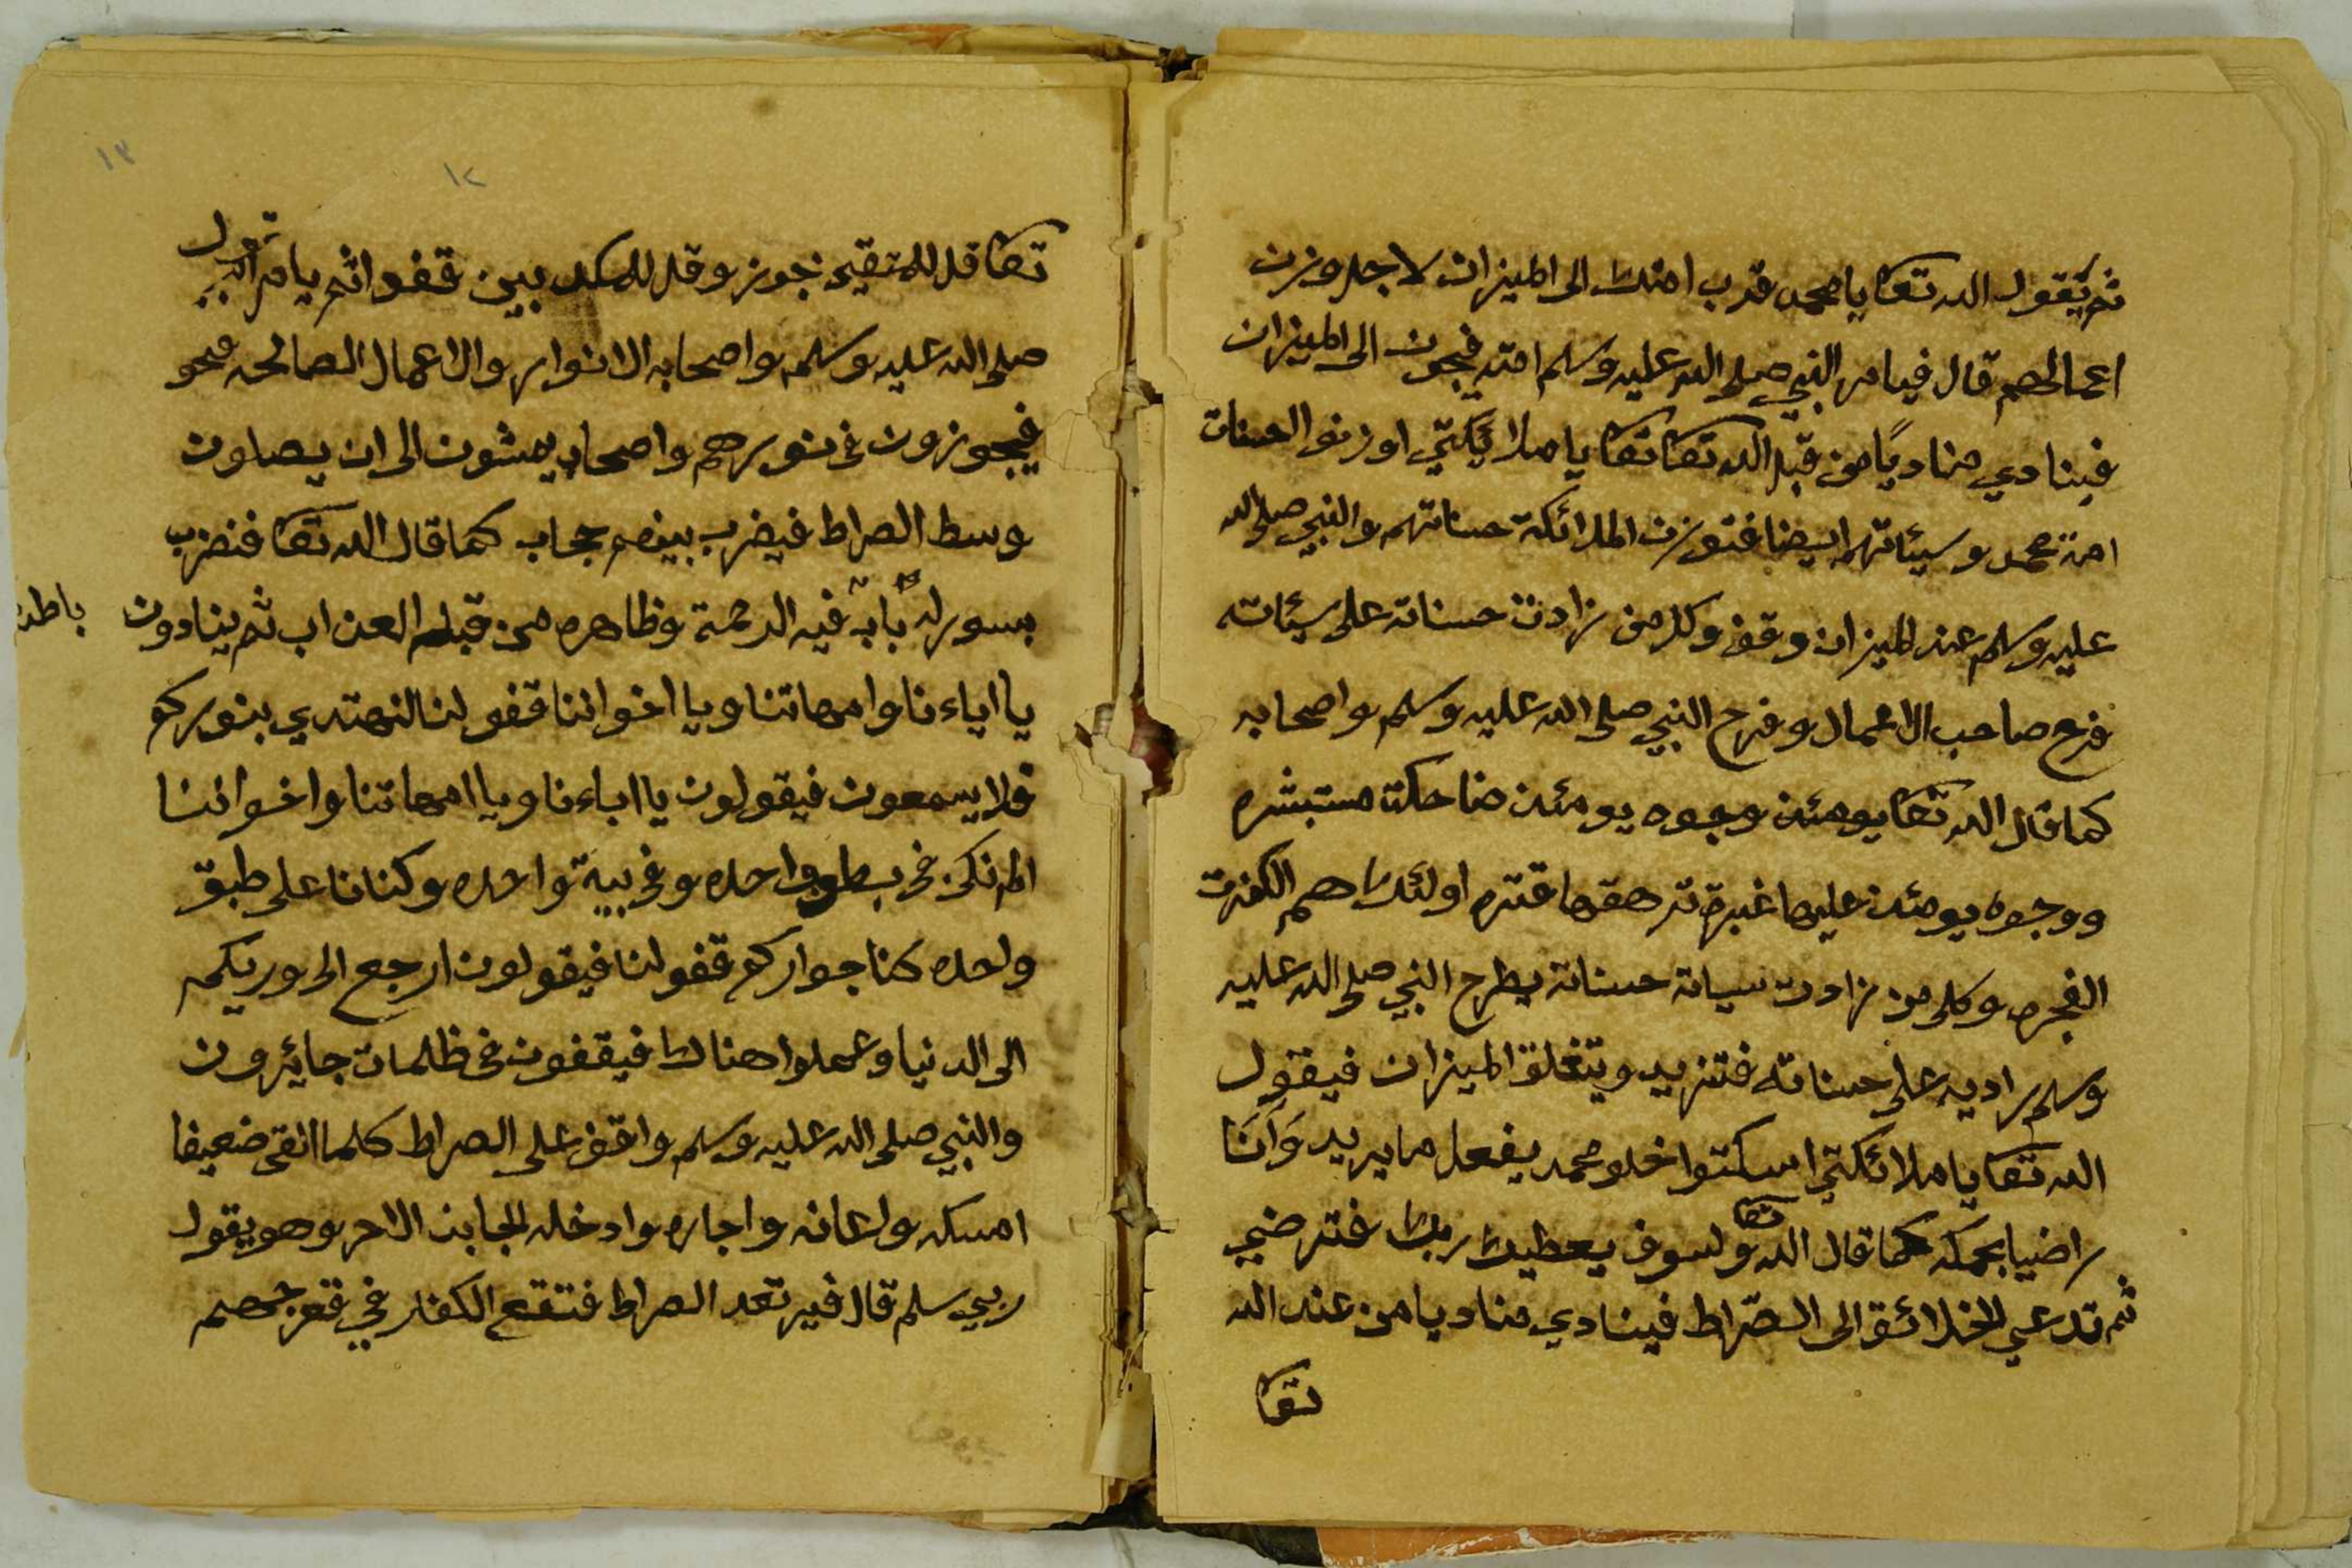 ثم يقول الله تعا يا محمد قدب امتك الى الميزان لاجل وزن
اعمالهم قال فيامر النبي صلى الله عليه وسلم امته فيجون الى الميزان
فينادي مناديًا من قبل الله تعا تعا يا ملائكتي اوزنوا الحسنات
امة محمد وسيئاتهم ايضا فتوزن الملائكة حسناتهم والنبي صلى الله
عليه وسلم عند الميزان وقف وكل من زادت حسناته على سيئاته
فرح صاحب الاعمال وفرح النبي صلى الله عليه وسلم واصحابه
كما قال الله تعا يومئذ وجوه يومئذ ضاحكة مستبشره
ووجوه يومئذ عليها غبرة ترهقها قتره اولئك هم الكفرة
الفجره وكل من زادت سياته حسناته يطرح النبي صلى الله عليه
وسلم راديه على حسناته فتزيد ويتغلق الميزان فيقول
الله تعا يا ملائكتي اسكتوا خلو محمد يفعل ما يريد وَأنَا
راضيا بحمكه كما قال الله تعا ولسوف يعطيك ربك فترضي
ثم تدعي الخلائق الى الصّراط فينادي مناديا من عند الله
تعا
١٢
١٣
تعا قل للمتقين جوز وقل للمكد بين قفوا ثم يامر
صلى الله عليه وسلم واصحابه الانوار والاعمال الصالحه محو
فيجوزون في نورهم واصحابه يمشون الى ان يصلون
وسط الصراط فيضرب بينهم حجاب كما قال الله تعا فنضرب
بسور له بابٌ فيه الرحمة وظاهره من قبله العذاب ثم ينادون
باطنه
يا اباءنا وامهاتنا ويا اخواننا قفو لنا لنهتدي بنوركم
فلا يسمعون فيقولون يا اباءنا ويا امهاتنا واخواننا
الم نكن في بطون واحده وفي بية واحده وكنانا على طبق
واحده كنا جواركم قفو لنا فيقولون ارجع الى وريكم
الى الدنيا وعملوا هناك فيقفون في ظلمات جايرون
والنبي صلى الله عليه وسلم واقف على الصراط كلما القى ضعيفا
امسكه واعانه واجاره وادخله لجابنه الاخر وهو يقول
ربي سلم قال فيرتعد الصراط فتقع الكفار في قعر جهنم